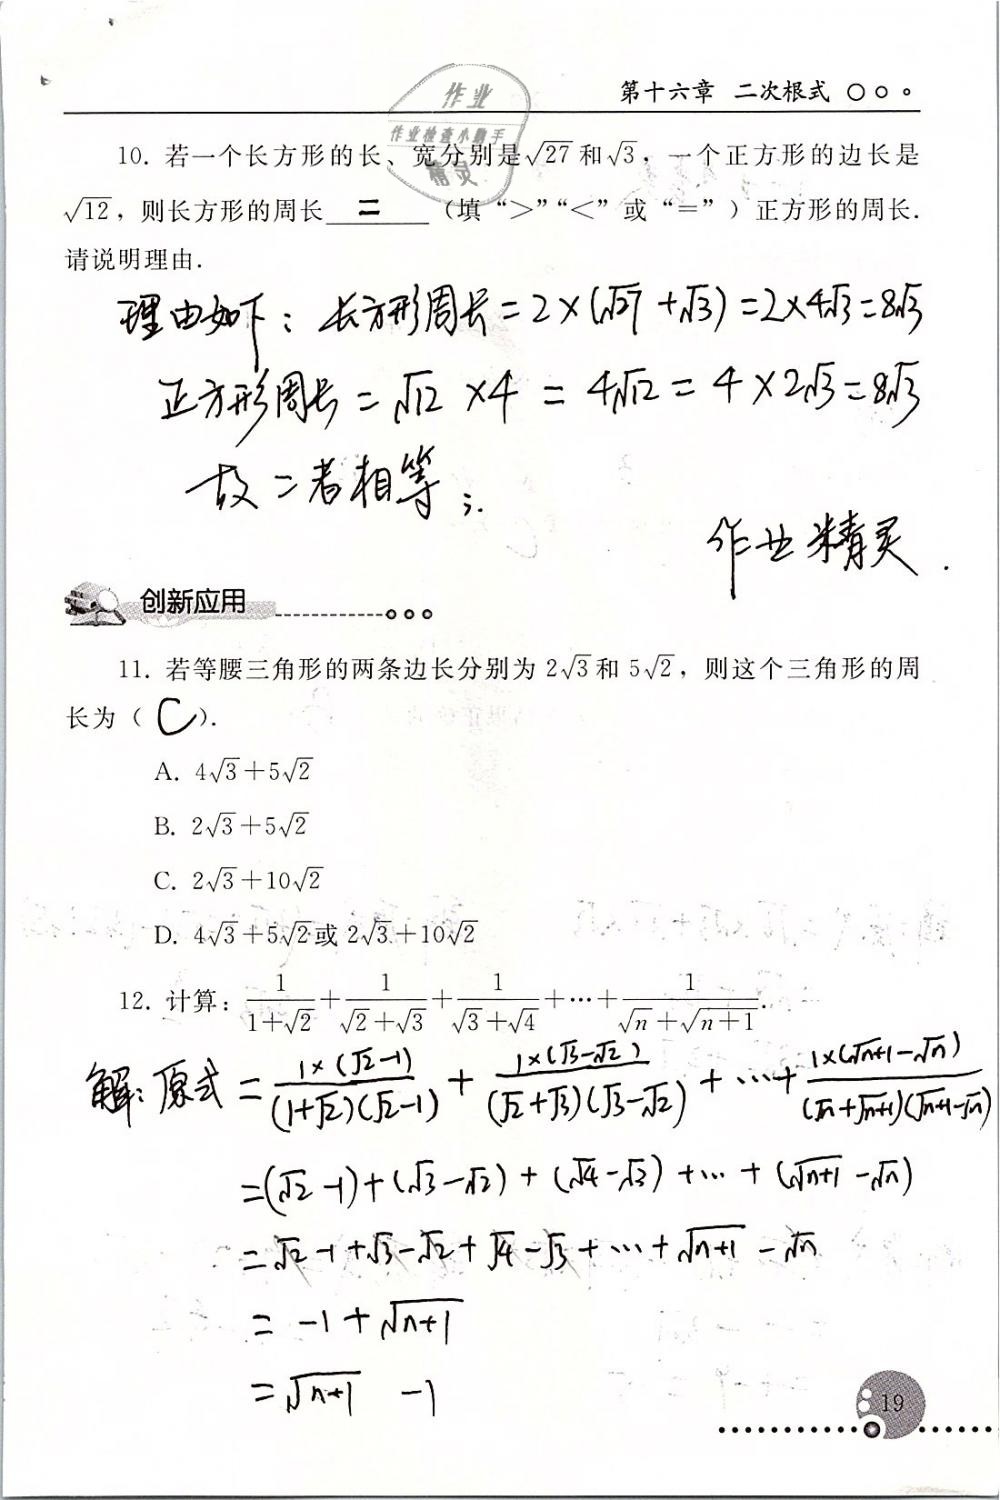 第十六章 二次根式
作业
作业检查小助手
精灵
10. 若一个长方形的长、宽分别是√27和√3，一个正方形的边长是
√12，则长方形的周长 = （填“>”“<”或“=”）正方形的周长.
请说明理由.
理由如下：长方形周长=2×(√27+√3)=2×4√3=8√3
正方形周长=√12×4=4√12=4×2√3=8√3
故二者相等；.
作业精灵.
创新应用
11. 若等腰三角形的两条边长分别为 2√3和 5√2，则这个三角形的周
长为（ C ）.
A. 4√3+5√2
B. 2√3+5√2
C. 2√3+10√2
D. 4√3+5√2或 2√3+10√2
12. 计算：1/(1+√2)+1/(√2+√3)+1/(√3+√4)+…+1/(√n+√(n+1)).
解：原式=1×(√2-1)/((1+√2)(√2-1))+1×(√3-√2)/((√2+√3)(√3-√2))+…+1×(√(n+1)-√n)/((√n+√(n+1))(√(n+1)-√n))
=(√2-1)+(√3-√2)+(√4-√3)+…+(√(n+1)-√n)
=√2-1+√3-√2+√4-√3+…+√(n+1)-√n
=-1+√(n+1)
=√(n+1) -1
19